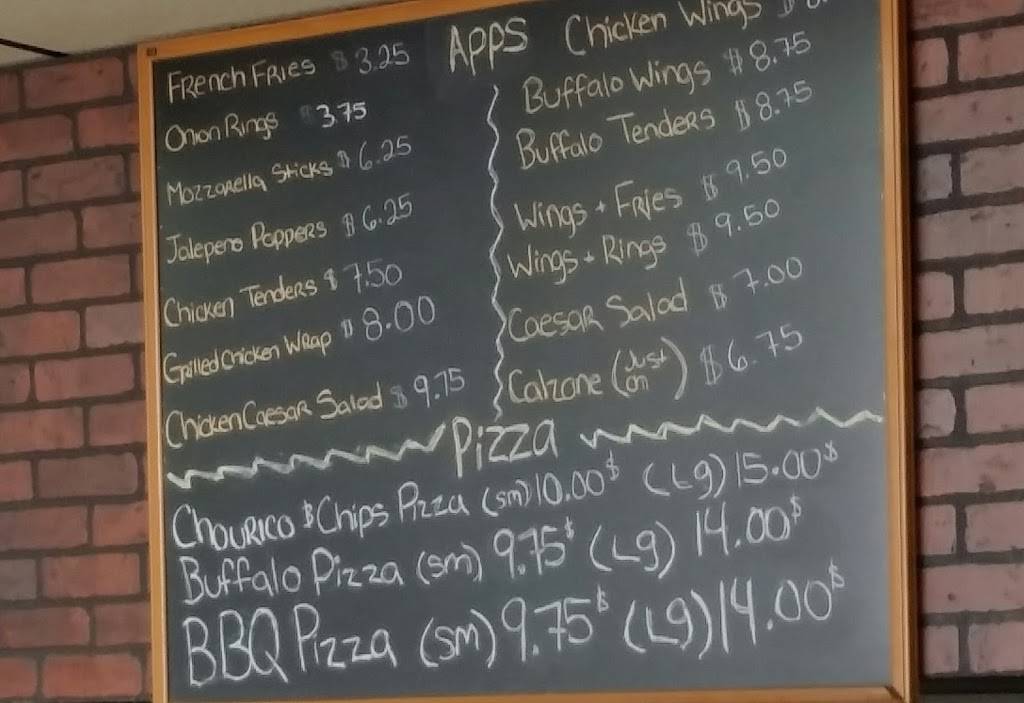 Apps
French Fries $ 3.25
Onion Rings 3.75
Mozzarella Sticks $ 6.25
Jalepeno Poppers $ 6.25
Chicken Tenders $ 7.50
Grilled Chicken Wrap $ 8.00
Chicken Caesar Salad $ 9.75
Chicken Wings $
Buffalo Wings $ 8.75
Buffalo Tenders $ 8.75
Wings + Fries $ 9.50
Wings + Rings $ 9.50
Caesar Salad $ 7.00
Calzone (Just on) $6.75
Pizza
Chourico $ Chips Pizza (sm) 10.00$ (Lg) 15.00$
Buffalo Pizza (sm) 9.75$ (Lg) 14.00$
BBQ Pizza (sm) 9.75$ (Lg) 14.00$